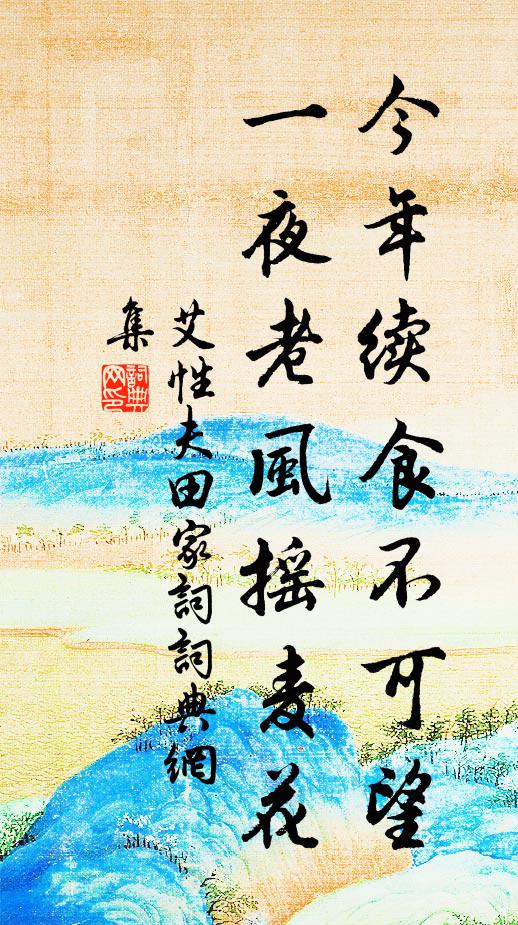 今年续食不可望
一夜老風摇麦花
艾性夫田家詞詞典網
集
詞典
网印